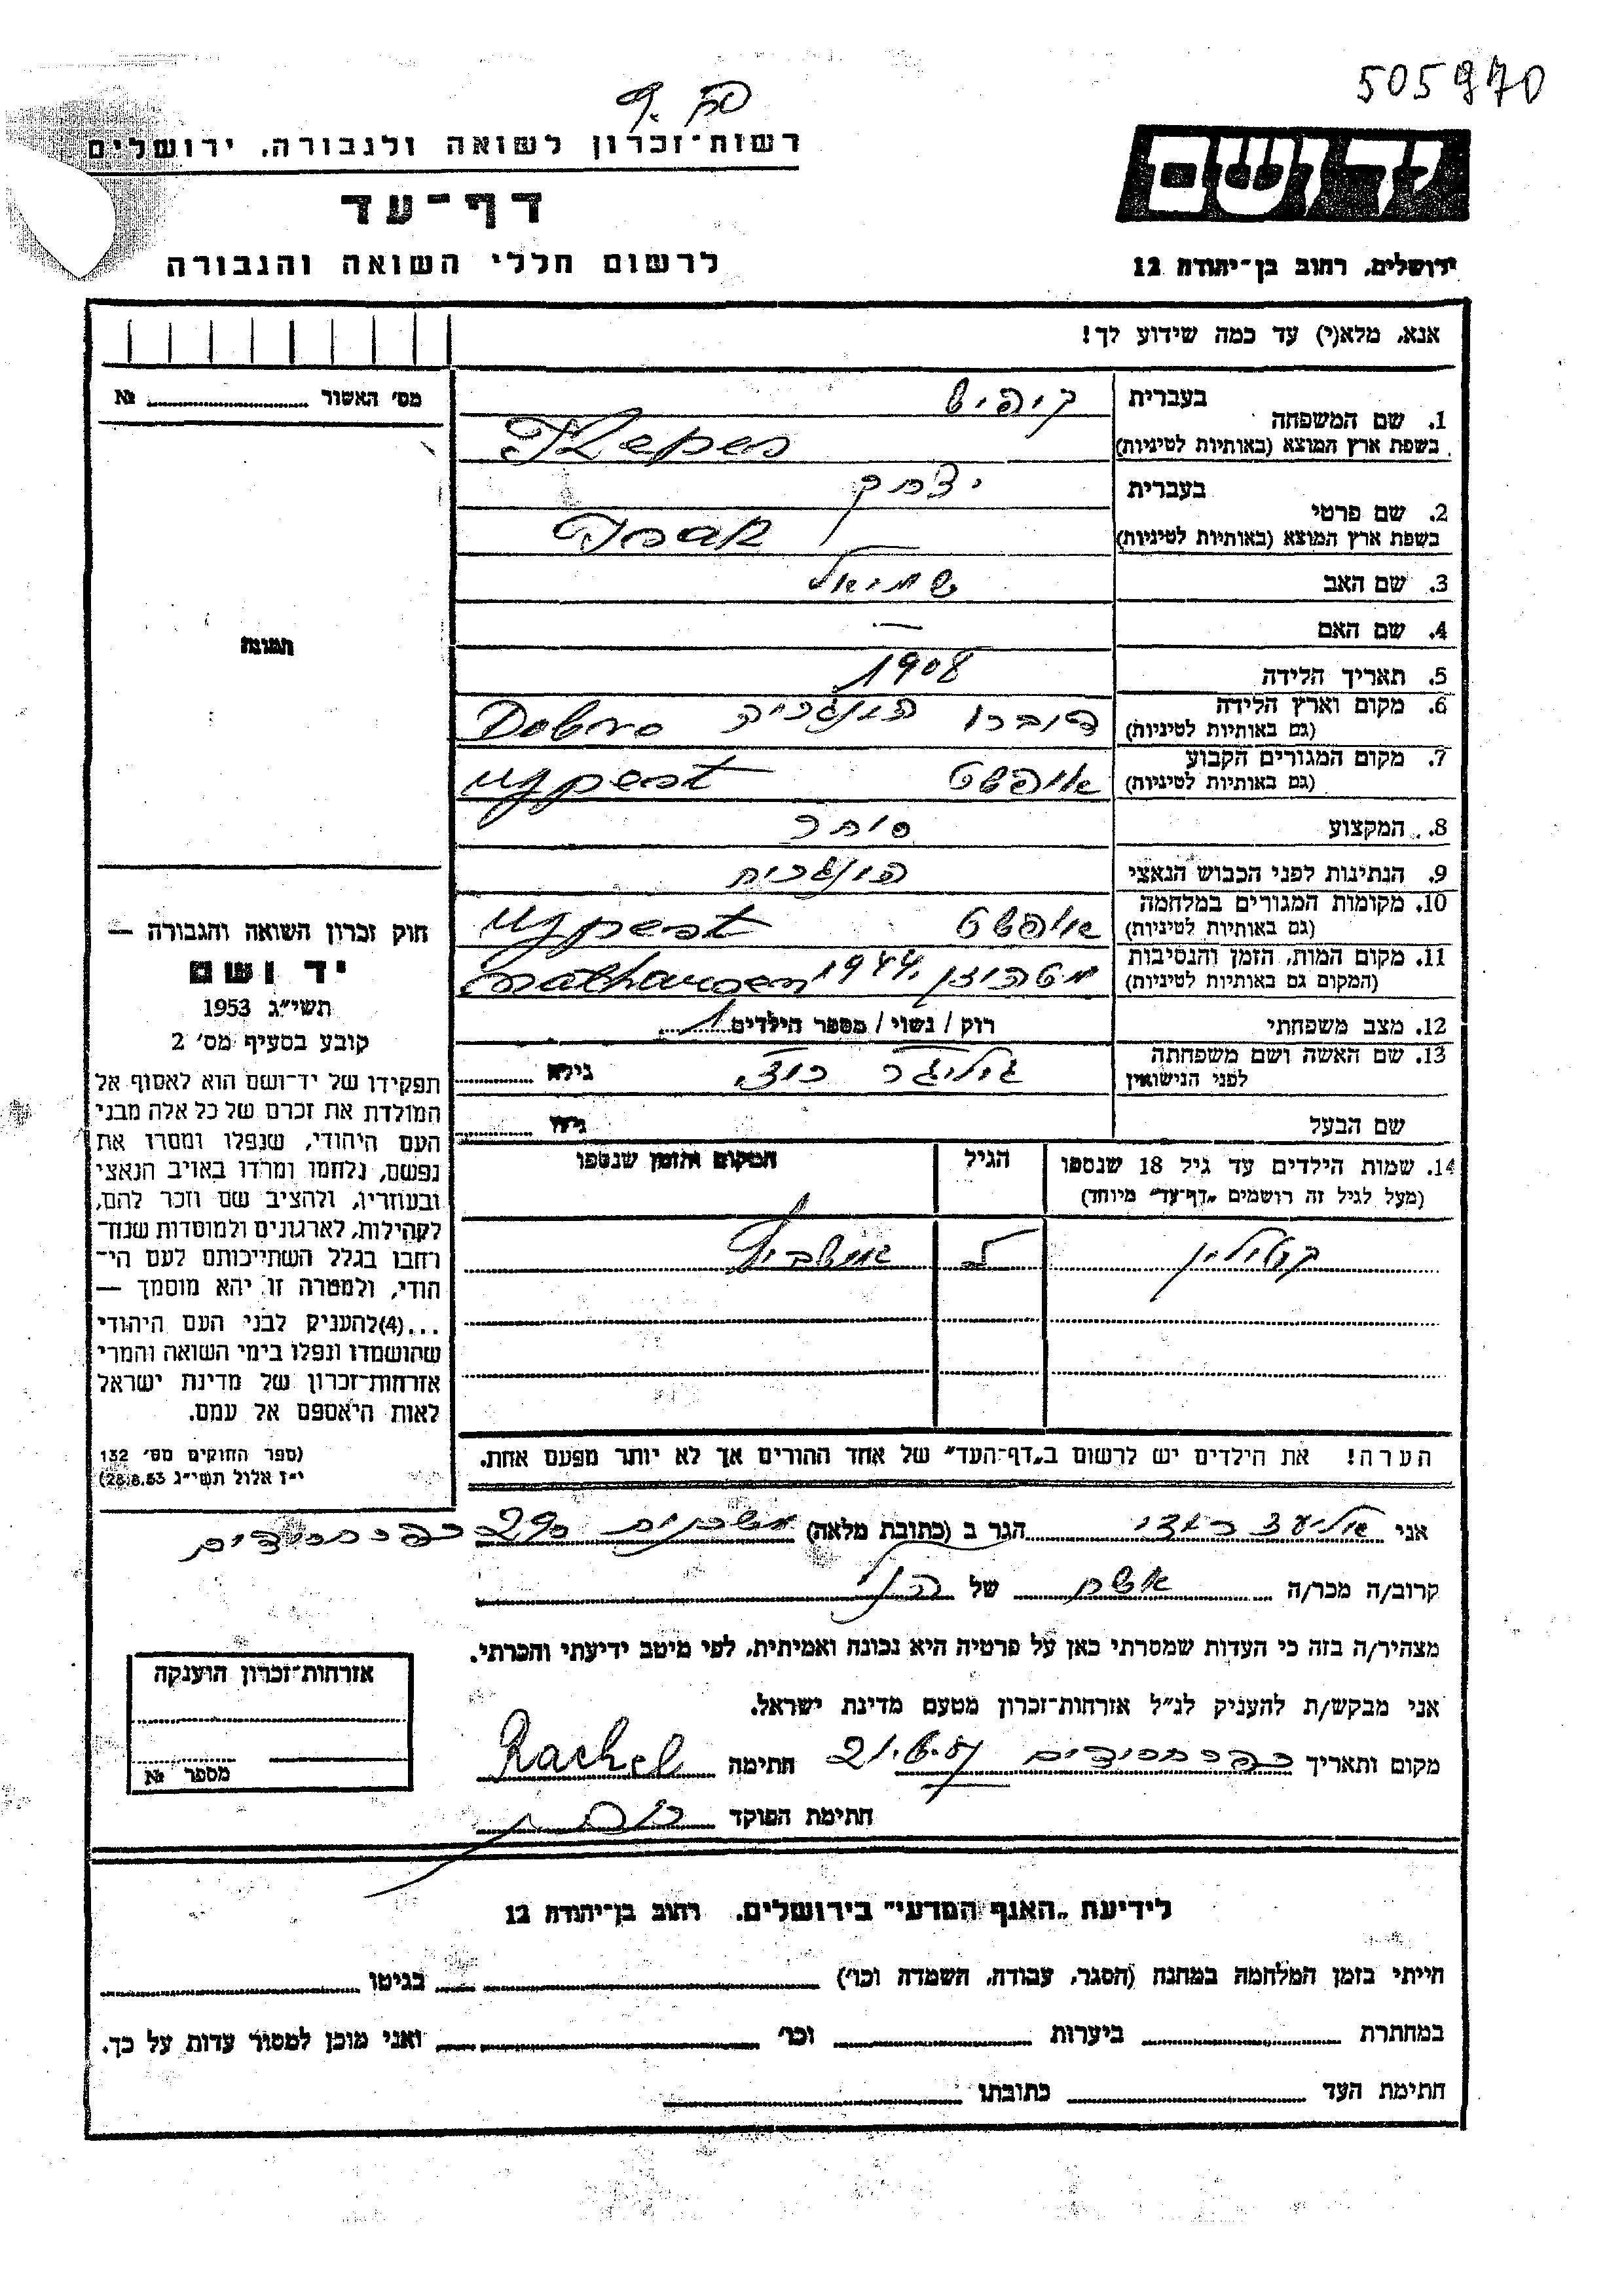 505970
רשות־זכרון לשואה ולגבורה, ירושלים
דף־עד
לרשום חללי השואה והגבורה
יד ושם
ירושלים, רחוב בן־יהודה 12
אנא, מלא(י) עד כמה שידוע לך!
מס' האשור № 
תמונה
1. שם המשפחה
בעברית קיפיש
בשפת ארץ המוצא (באותיות לטיניות) Kepes
2. שם פרטי
בעברית יצחק
בשפת ארץ המוצא (באותיות לטיניות) Isak
3. שם האב
4. שם האם —
5. תאריך הלידה 1908
6. מקום וארץ הלידה
(גם באותיות לטיניות) דוברו הונגריה Dobro
7. מקום המגורים הקבוע
(גם באותיות לטיניות) אויפשט ujpest
8. המקצוע סוחר
9. הנתינות לפני הכבוש הנאצי הונגרית
10. מקומות המגורים במלחמה
(גם באותיות לטיניות) אויפשט ujpest
11. מקום המות, הזמן והנסיבות
(המקום גם באותיות לטיניות) מטהוזן 1944 mathausen
12. מצב משפחתי רוק / נשוי / מספר הילדים 1
13. שם האשה ושם משפחתה
לפני הנישואין גילה
שם הבעל גילו
14. שמות הילדים עד גיל 18 שנספו
(מעל לגיל זה רושמים „דף־עד" מיוחד)
הגיל
המקום והזמן שנספו
קטילין
אושביץ
הערה! את הילדים יש לרשום ב„דף־העד" של אחד ההורים אך לא יותר מפעם אחת.
חוק זכרון השואה והגבורה —
יד ושם
תשי"ג 1953
קובע בסעיף מס' 2
תפקידו של יד־ושם הוא לאסוף אל
המולדת את זכרם של כל אלה מבני
העם היהודי, שנפלו ומסרו את
נפשם, נלחמו ומרדו באויב הנאצי
ובעוזריו, ולהציב שם וזכר להם,
לקהילות, לארגונים ולמוסדות שנח־
רבו בגלל השתייכותם לעם הי־
הודי, ולמטרה זו יהא מוסמך —
...(4) להעניק לבני העם היהודי
שהושמדו ונפלו בימי השואה והמרי
אזרחות־זכרון של מדינת ישראל
לאות היאספם אל עמם.
(ספר החוקים מס' 132
י"ז אלול תשי"ג 28.8.53)
אני הגר ב (כתובת מלאה) כפר חסידים
קרוב/ה מכר/ה אשה של הנ"ל
מצהיר/ה בזה כי העדות שמסרתי כאן על פרטיה היא נכונה ואמיתית, לפי מיטב ידיעתי והכרתי.
אני מבקש/ת להעניק לנ"ל אזרחות־זכרון מטעם מדינת ישראל.
מקום ותאריך כפר חסידים 21.6. חתימה Rachel
חתימת הפוקד
אזרחות־זכרון הוענקה
מספר №
לידיעת „האגף המדעי" בירושלים, רחוב בן־יהודה 12
הייתי בזמן המלחמה במחנה (הסגר, עבודה, השמדה וכו') בגיטו
במחתרת ביערות וכו' ואני מוכן למסור עדות על כך.
חתימת העד כתובתו